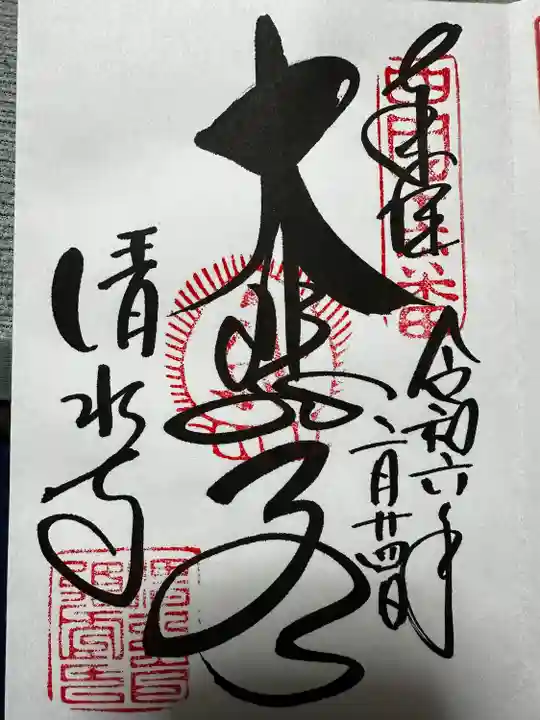 奉拝
令和六年
二月廿四日
大悲閣
清水寺